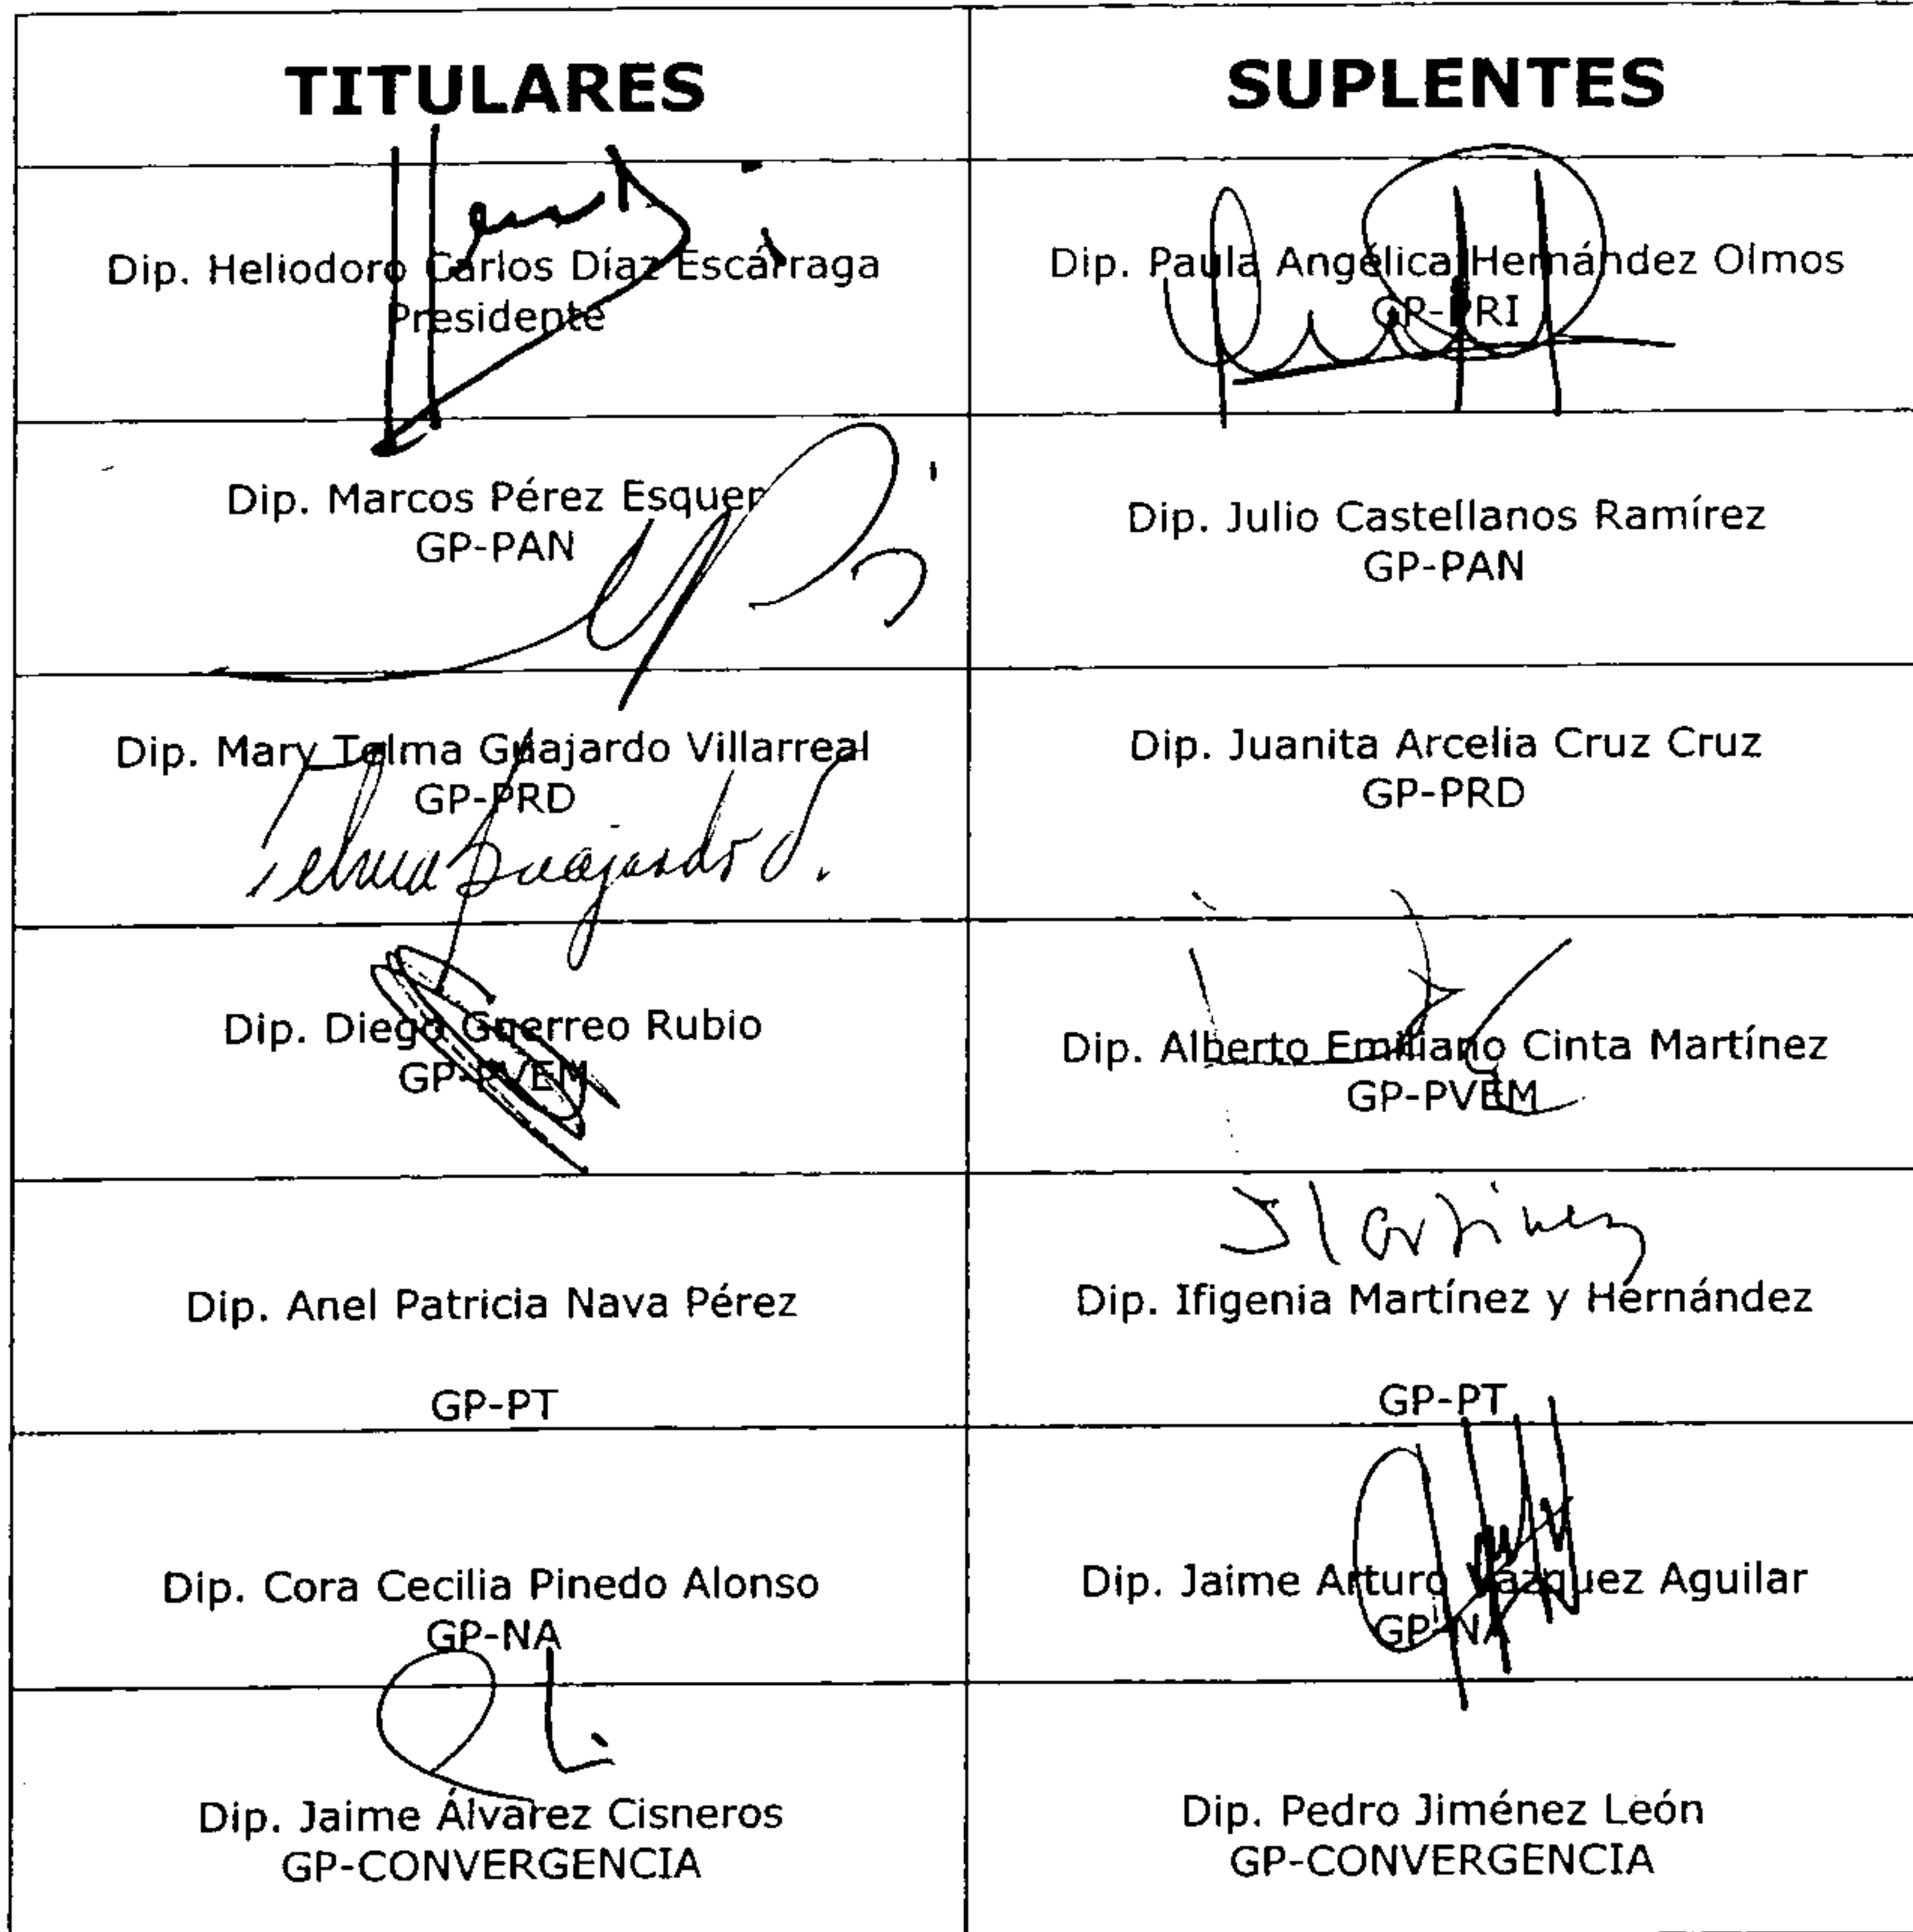 TITULARES
SUPLENTES
Dip. Heliodoro Carlos Díaz Escárraga
Presidente
Dip. Paula Angélica Hernández Olmos
GP-PRI
Dip. Marcos Pérez Esquer
GP-PAN
Dip. Julio Castellanos Ramírez
GP-PAN
Dip. Mary Telma Guajardo Villarreal
GP-PRD
Telma Guajardo V.
Dip. Juanita Arcelia Cruz Cruz
GP-PRD
Dip. Diego Guerreo Rubio
GP-PVEM
Dip. Alberto Emiliano Cinta Martínez
GP-PVEM
Dip. Anel Patricia Nava Pérez
GP-PT
Dip. Ifigenia Martínez y Hernández
GP-PT
Dip. Cora Cecilia Pinedo Alonso
GP-NA
Dip. Jaime Arturo Vázquez Aguilar
GP-NA
Dip. Jaime Álvarez Cisneros
GP-CONVERGENCIA
Dip. Pedro Jiménez León
GP-CONVERGENCIA